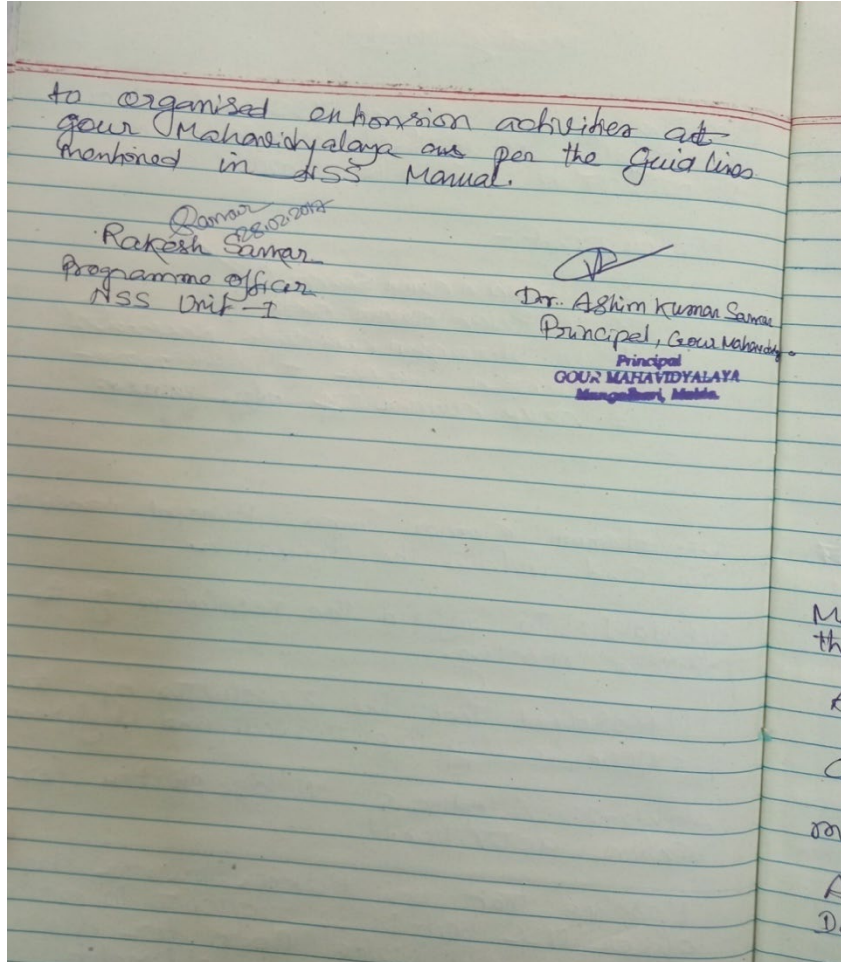 to organised extension activities at
gour Mahavidyalaya as per the Guid lines
mentioned in NSS Manual.
28.02.2017
Rakesh Sarkar
Programme officer
NSS Unit-I
Dr. Ashim Kumar Sarkar
Principal, Gour Mahavidy.
Principal
GOUR MAHAVIDYALAYA
Mangalbari, Malda
M
th
D.